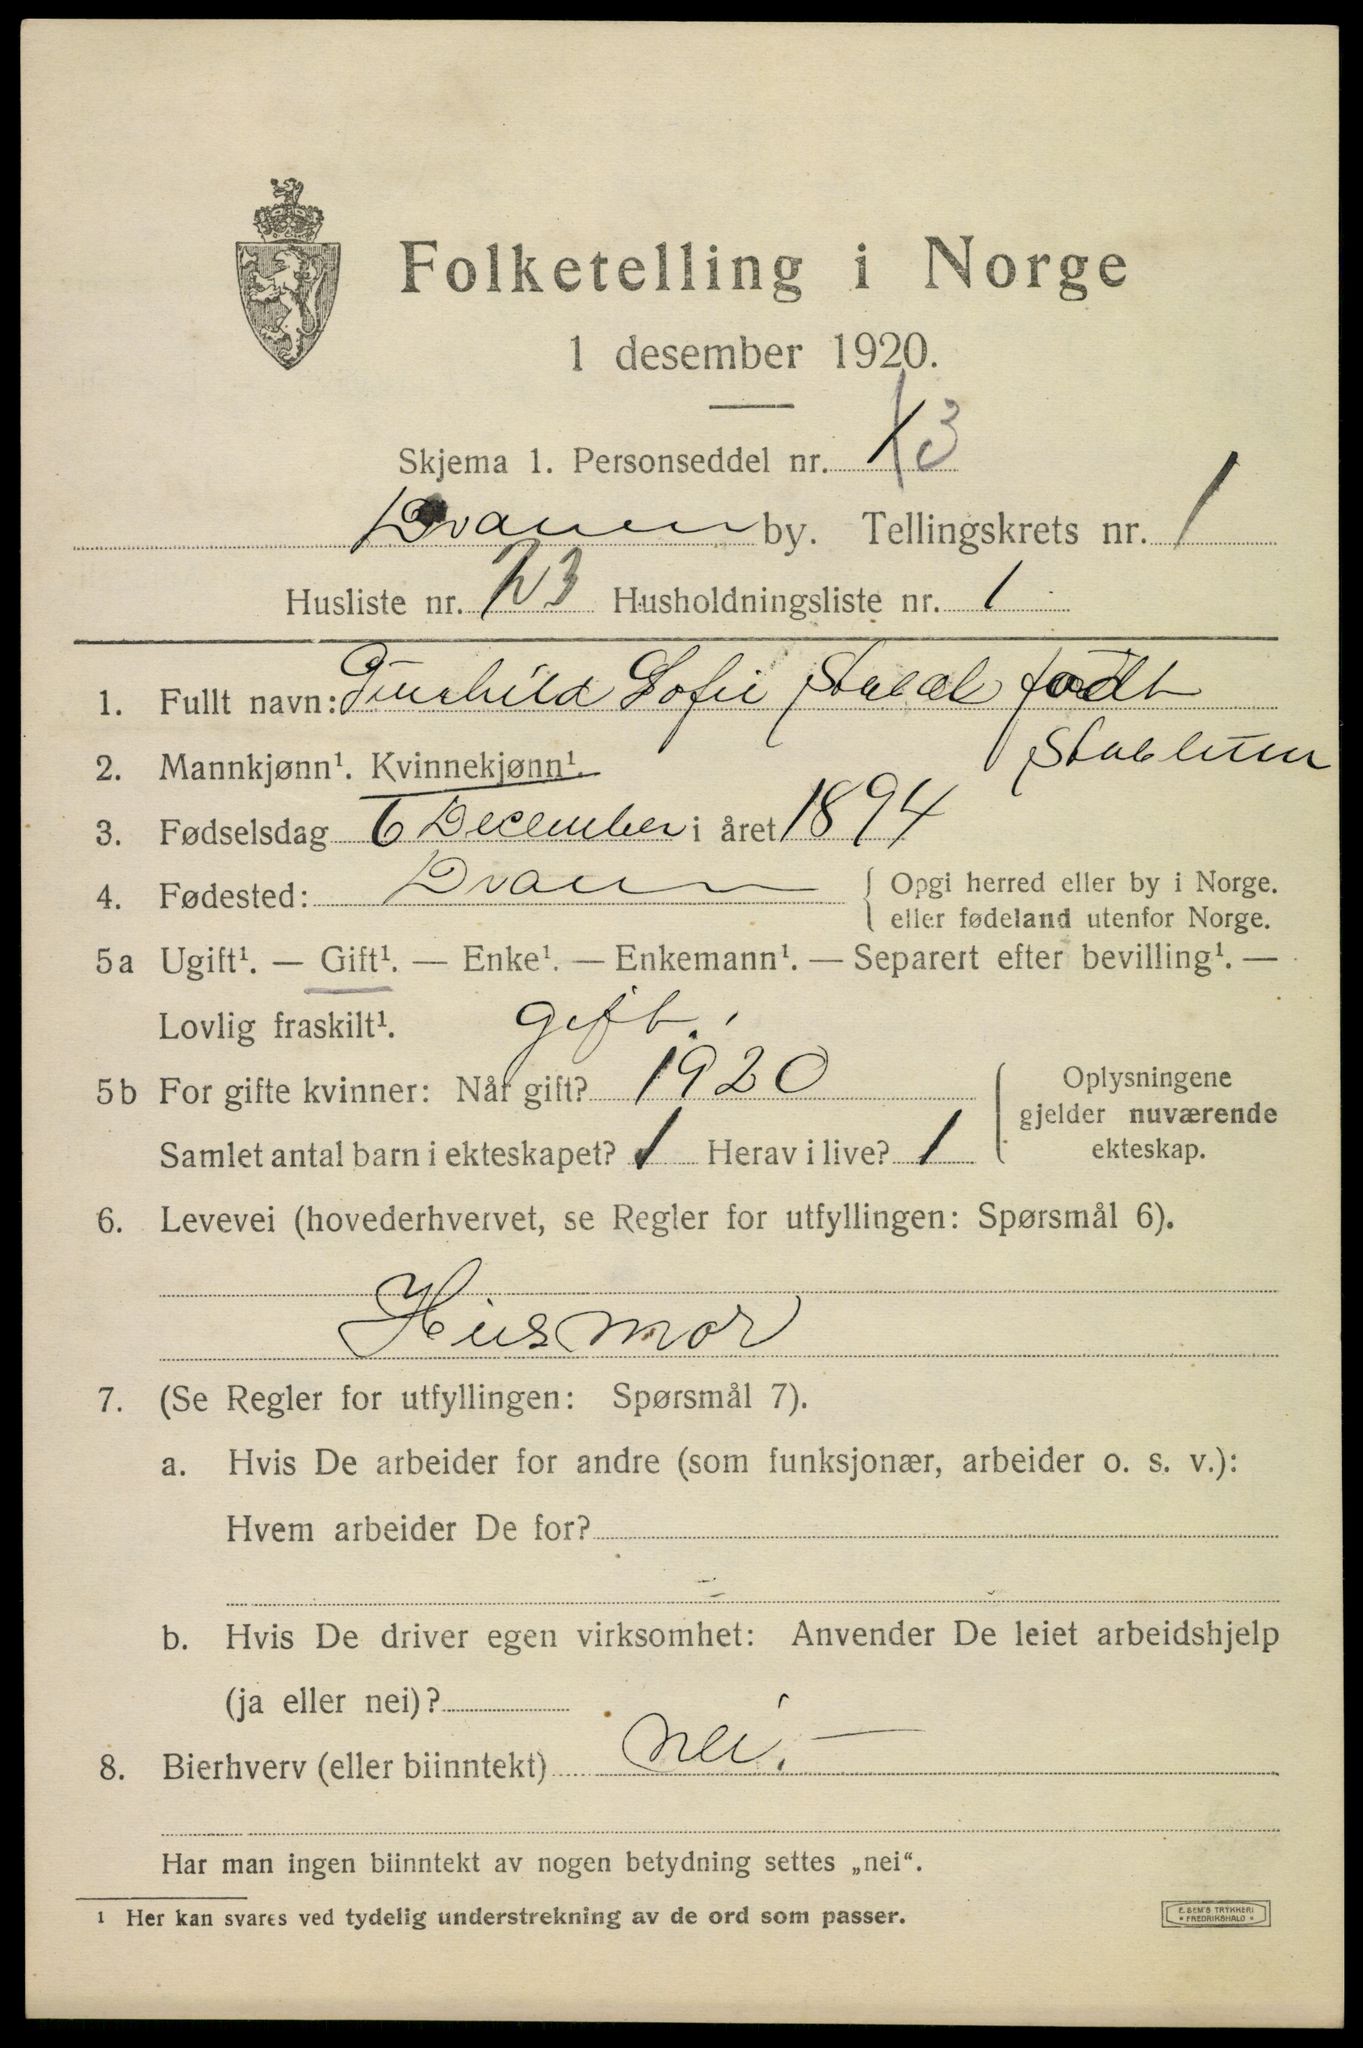 Folketelling i Norge
1 desember 1920.
Skjema 1. Personseddel nr. 3
by. Tellingskrets nr. 1
Husliste nr. 23 Husholdningsliste nr. 1
1. Fullt navn: Gunhild Sofie født
2. Mannkjønn¹. Kvinnekjønn¹.
3. Fødselsdag 6 December i året 1894
4. Fødested: { Opgi herred eller by i Norge.
eller fødeland utenfor Norge.
5a Ugift¹. — Gift¹. — Enke¹. — Enkemann¹. — Separert efter bevilling¹. —
Lovlig fraskilt¹. gift.
5b For gifte kvinner: Når gift? 1920
Samlet antal barn i ekteskapet? 1 Herav i live? 1
Oplysningene
gjelder nuværende
ekteskap.
6. Levevei (hovederhvervet, se Regler for utfyllingen: Spørsmål 6).
Husmor
7. (Se Regler for utfyllingen: Spørsmål 7).
a. Hvis De arbeider for andre (som funksjonær, arbeider o. s. v.):
Hvem arbeider De for?
b. Hvis De driver egen virksomhet: Anvender De leiet arbeidshjelp
(ja eller nei)?
8. Bierhverv (eller biinntekt) nei. —
Har man ingen biinntekt av nogen betydning settes „nei".
1 Her kan svares ved tydelig understrekning av de ord som passer.
E. SEM'S TRYKKERI
* FREDRIKSHALD *